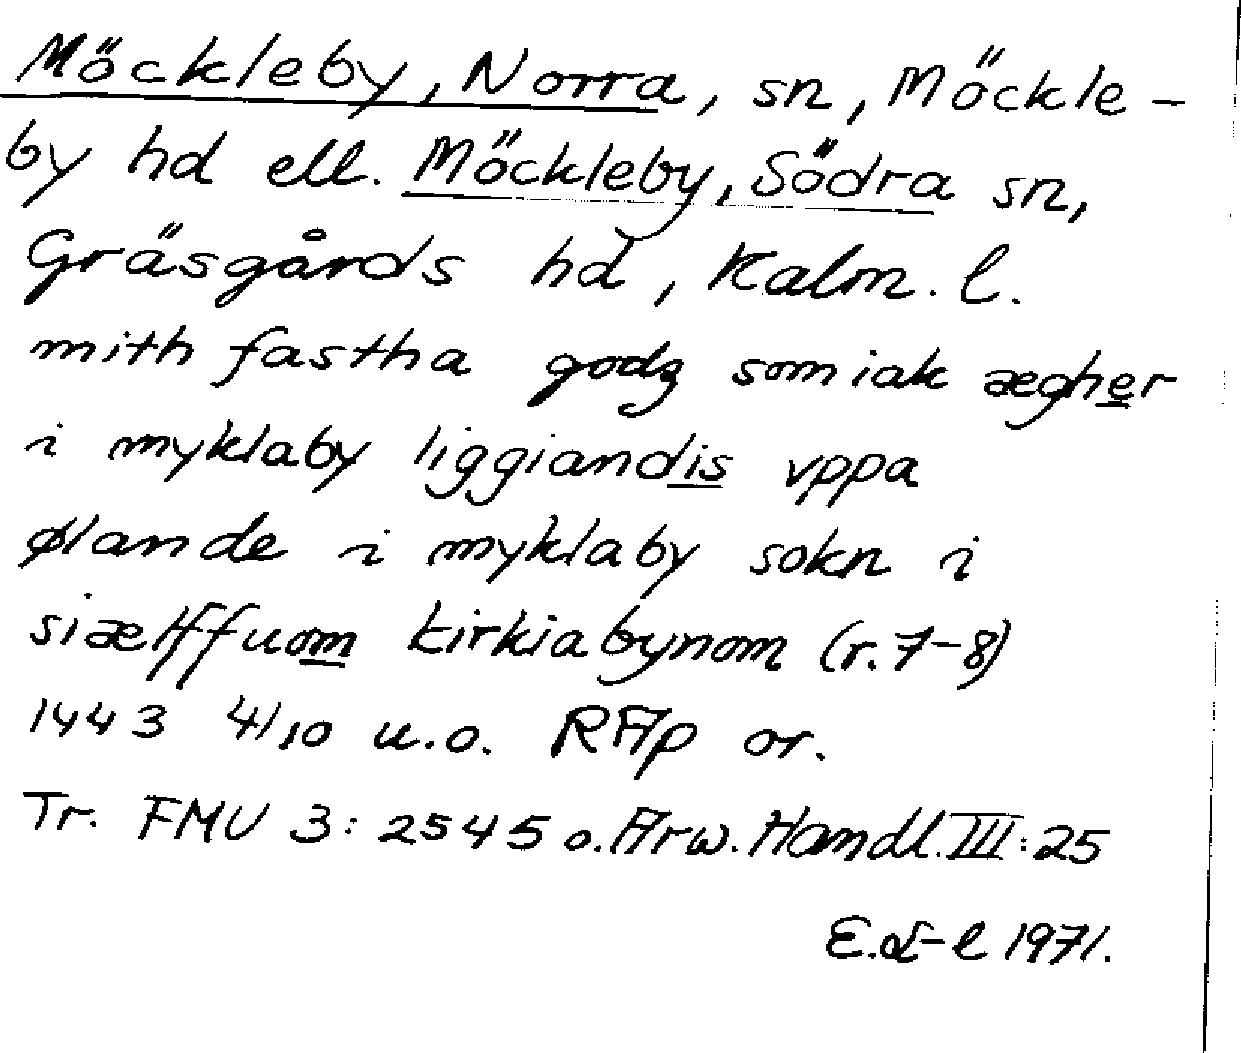 Möckleby, Norra, sn, Möckle-
by hd ell. Möckleby, Södra sn,
Gräsgårds hd, Kalm. l.
mith fastha godz som iak ægher
i myklaby liggiandis vppa
ølande i myklaby sokn i
siælffuom kirkiabynom (r. 7-8)
1443 4/10 u.o. RAp or.
Tr. FMU 3: 2545 o. Arw. Handl. III: 25
1971.